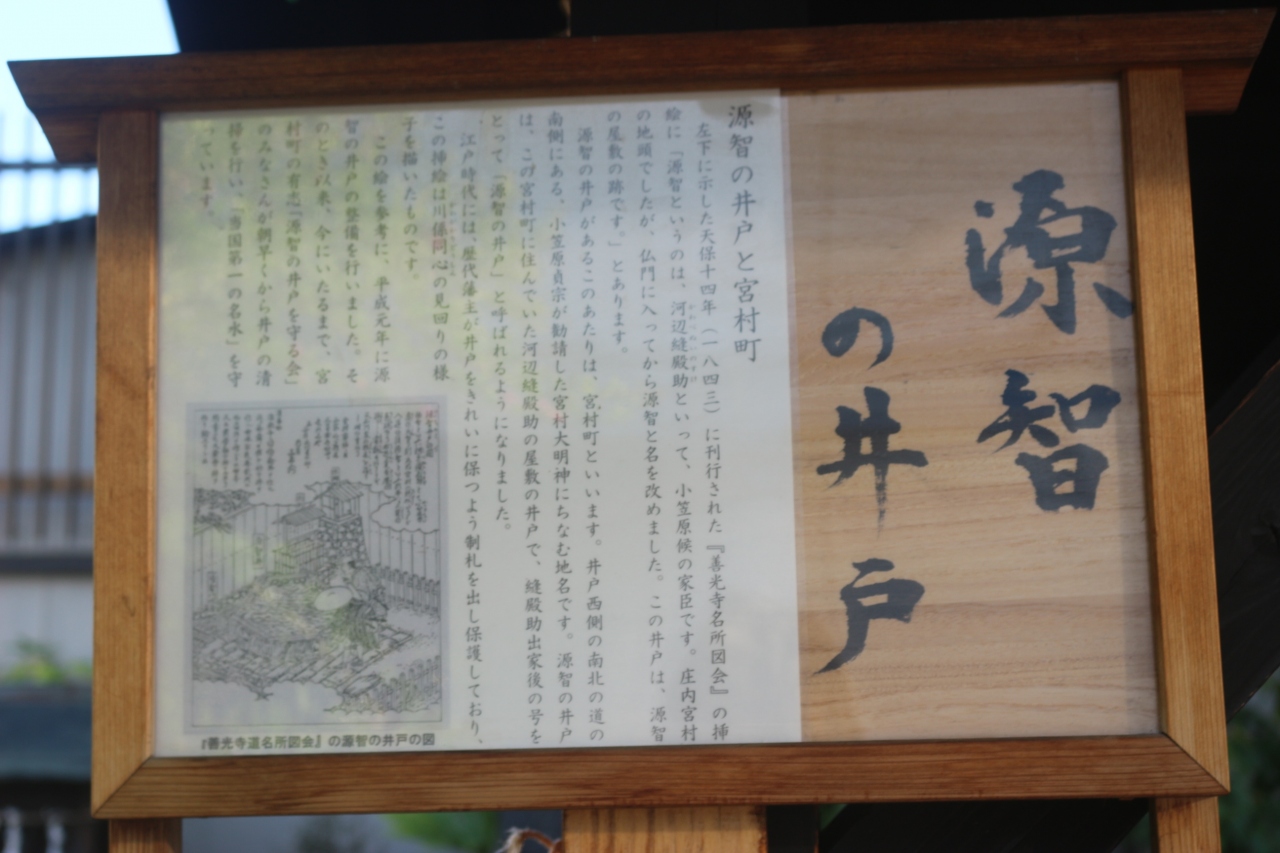 源智
の井戸
源智の井戸と宮村町
左下に示した天保十四年(一八四三)に刊行された『善光寺名所図会』の挿
絵に「源智というのは、河辺縫殿助といって、小笠原候の家臣です。庄内宮村
の地頭でしたが、仏門に入ってから源智と名を改めました。この井戸は、源智
の屋敷の跡です。」とあります。
源智の井戸があるこのあたりは、宮村町といいます。井戸西側の南北の道の
南側にある、小笠原貞宗が勧請した宮村大明神にちなむ地名です。源智の井戸
は、この宮村町に住んでいた河辺縫殿助の屋敷の井戸で、縫殿助出家後の号を
とって「源智の井戸」と呼ばれるようになりました。
江戸時代には、歴代藩主が井戸をきれいに保つよう制札を出し保護しており、
この挿絵は川係同心の見回りの様
子を描いたものです。
この絵を参考に、平成元年に源
智の井戸の整備を行いました。そ
のとき以来、今にいたるまで、宮
村町の有志「源智の井戸を守る会」
のみなさんが朝早くから井戸の清
掃を行い、「当国第一の名水」を守
っています。
『善光寺道名所図会』の源智の井戸の図